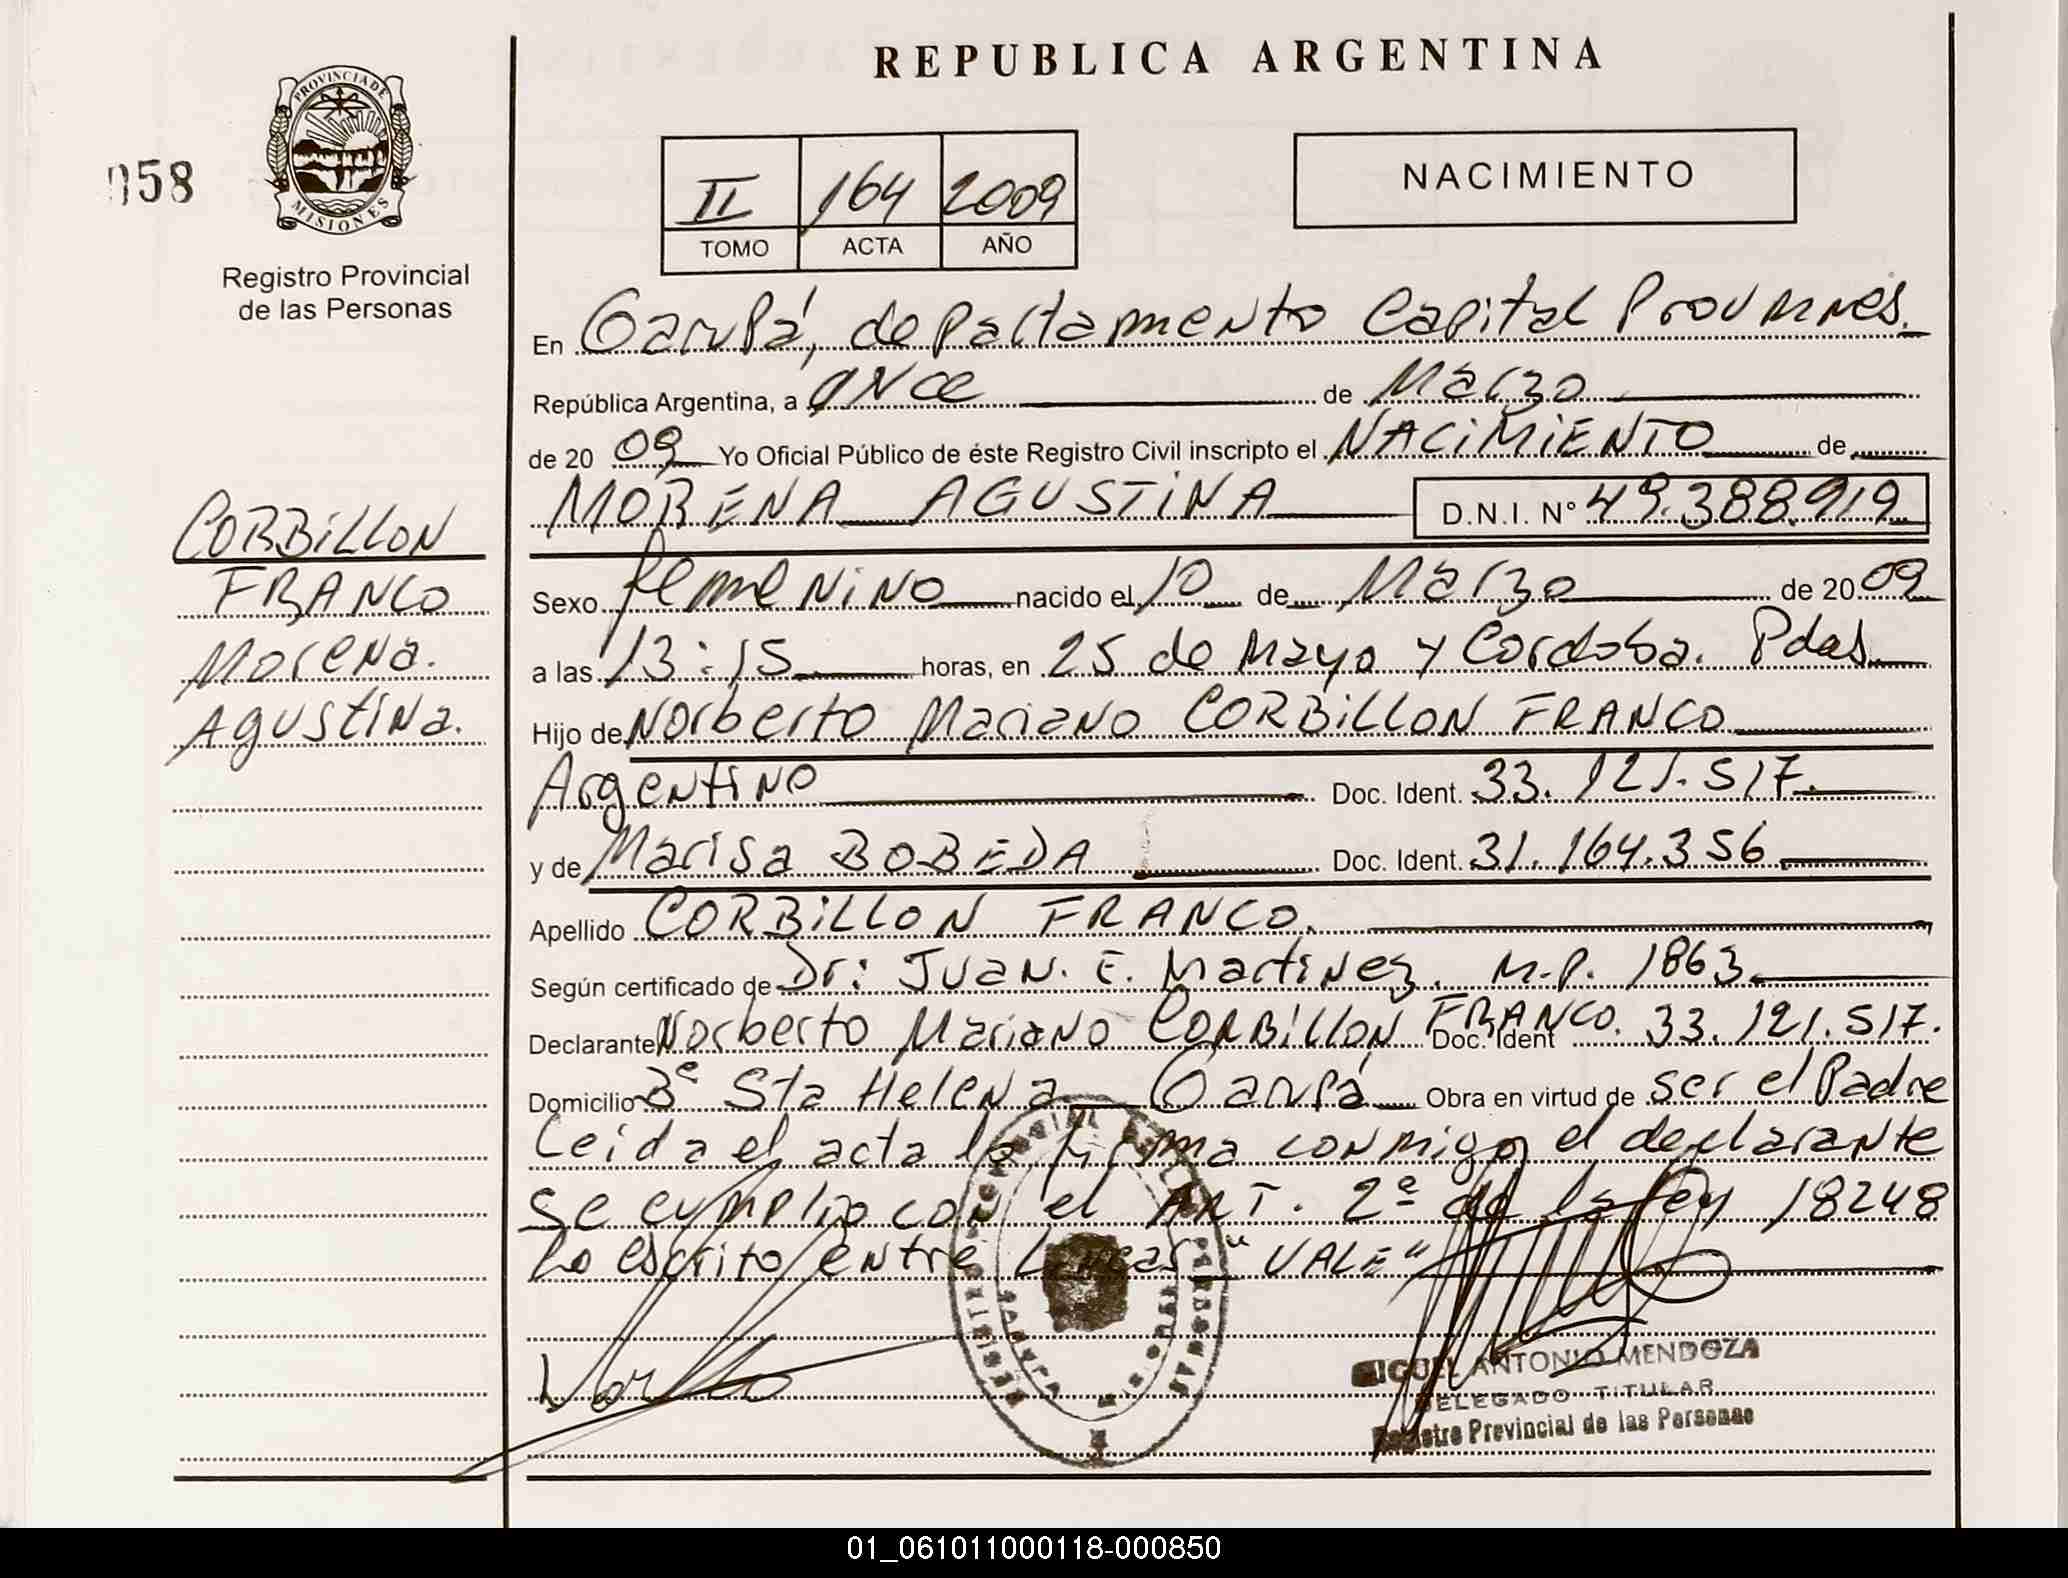 REPUBLICA ARGENTINA
PROVINCIA DE MISIONES
058
Registro Provincial
de las Personas
II 164 2009
TOMO ACTA AÑO
NACIMIENTO
En Garupá, departamento Capital Prov Mnes.
República Argentina, a once de Marzo
de 2009 Yo Oficial Público de éste Registro Civil inscripto el NACIMIENTO de
MORENA AGUSTINA D.N.I. N° 49.388.919
CORBILLON
FRANCO
Morena.
Agustina.
Sexo femenino nacido el 10 de Marzo de 2009
a las 13:15 horas, en 25 de Mayo y Cordoba. Pdas.
Hijo de Norberto Mariano CORBILLON FRANCO
Argentino Doc. Ident. 33.121.517.
y de Marisa BOBEDA Doc. Ident. 31.164.356
Apellido CORBILLON FRANCO.
Según certificado de Dr: Juan. E. Martinez. M.P. 1863.
Declarante Norberto Mariano CORBILLON FRANCO. Doc. Ident 33.121.517.
Domicilio Bº Sta Helena Garupá Obra en virtud de ser el Padre
Leida el acta la firma conmigo el declarante
se cumplio con el ART. 2º de la ley 18248
Lo escrito entre Lineas "VALE"
MIGUEL ANTONIO MENDOZA
DELEGADO TITULAR
Registro Provincial de las Personas
01_061011000118-000850